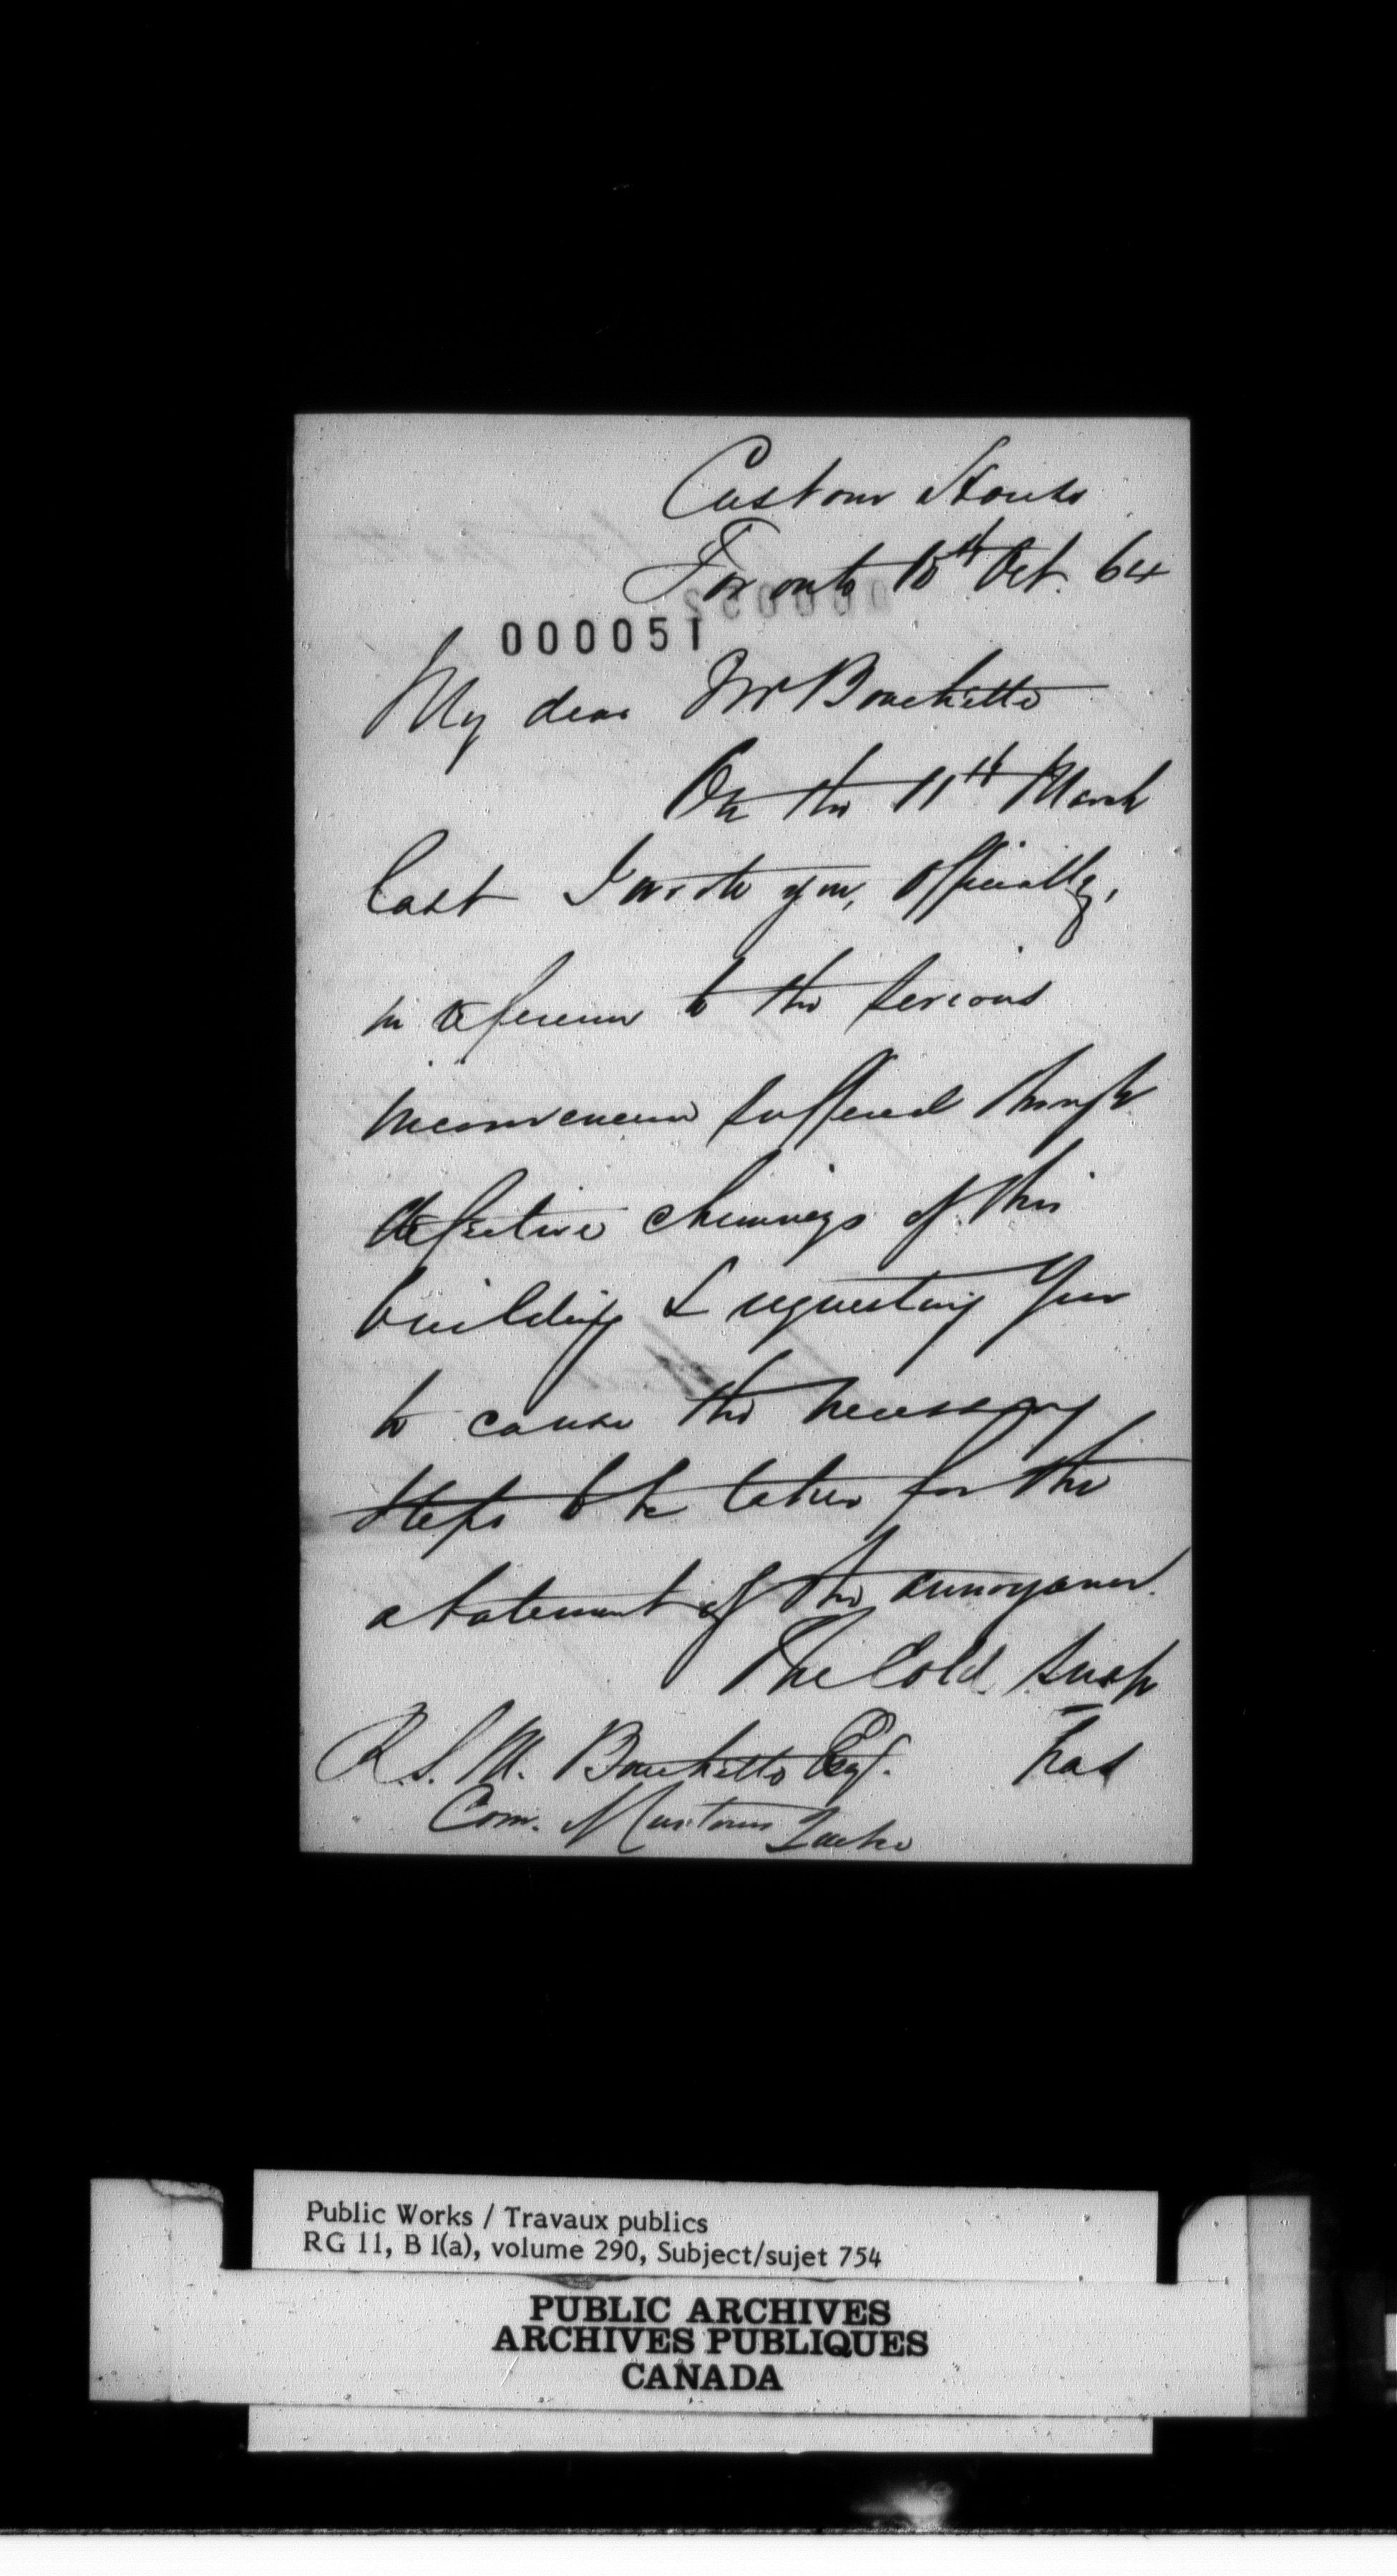 Custom House
Toronto 15th Oct. 64
000051
My dear Mr Bouchette
On the 11th March
last I wrote you, officially,
in reference to the serious
inconvenience suffered through
defective chimneys of this
building & requesting you
to cause the necessary
steps to be taken for the
abatement of the annoyance.
The Cold Snap
has
R. S. M. Bouchette Esq.
Com. of Customs Quebec
Public Works / Travaux publics
RG 11, B 1(a), volume 290, Subject/sujet 754
PUBLIC ARCHIVES
ARCHIVES PUBLIQUES
CANADA